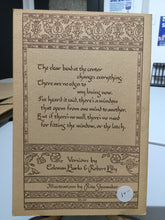 The clear bead at the center
changes everything.
There are no edges to
my loving now.
I've heard it said, there's a window
that opens from one mind to another,
But if there's no wall, there's no need
for fitting the window, or the latch.
Versions by
Coleman Barks & Robert Bly
Illustrations by Rita